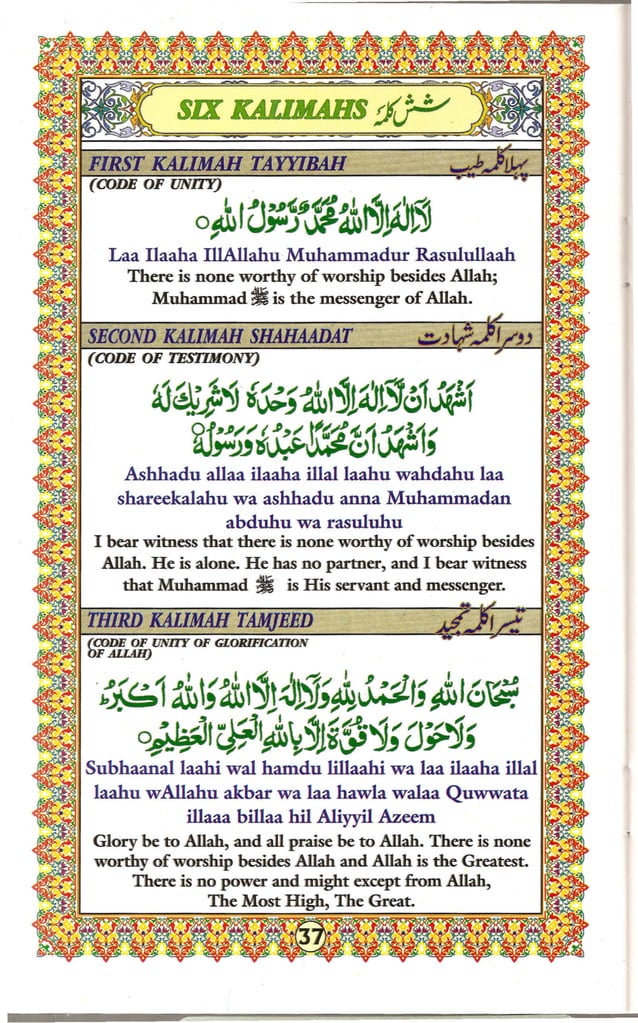 SIX KALIMAHS شش کلمے
FIRST KALIMAH TAYYIBAH پہلا کلمہ طیب
(CODE OF UNITY)
لَآ اِلٰهَ اِلَّا اللّٰهُ مُحَمَّدٌ رَّسُوْلُ اللّٰهِ ○
Laa Ilaaha IllAllahu Muhammadur Rasulullaah
There is none worthy of worship besides Allah;
Muhammad ﷺ is the messenger of Allah.
SECOND KALIMAH SHAHAADAT دوسرا کلمہ شہادت
(CODE OF TESTIMONY)
اَشْهَدُ اَنْ لَّآ اِلٰهَ اِلَّا اللّٰهُ وَحْدَهٗ لَا شَرِيْكَ لَهٗ
وَاَشْهَدُ اَنَّ مُحَمَّدًا عَبْدُهٗ وَرَسُوْلُهٗ ○
Ashhadu allaa ilaaha illal laahu wahdahu laa
shareekalahu wa ashhadu anna Muhammadan
abduhu wa rasuluhu
I bear witness that there is none worthy of worship besides
Allah. He is alone. He has no partner, and I bear witness
that Muhammad ﷺ is His servant and messenger.
THIRD KALIMAH TAMJEED تیسرا کلمہ تمجید
(CODE OF UNITY OF GLORIFICATION
OF ALLAH)
سُبْحَانَ اللّٰهِ وَالْحَمْدُ لِلّٰهِ وَلَآ اِلٰهَ اِلَّا اللّٰهُ وَاللّٰهُ اَكْبَرُ ؕ
وَلَا حَوْلَ وَلَا قُوَّةَ اِلَّا بِاللّٰهِ الْعَلِيِّ الْعَظِيْمِ ○
Subhaanal laahi wal hamdu lillaahi wa laa ilaaha illal
laahu wAllahu akbar wa laa hawla walaa Quwwata
illaaa billaa hil Aliyyil Azeem
Glory be to Allah, and all praise be to Allah. There is none
worthy of worship besides Allah and Allah is the Greatest.
There is no power and might except from Allah,
The Most High, The Great.
37